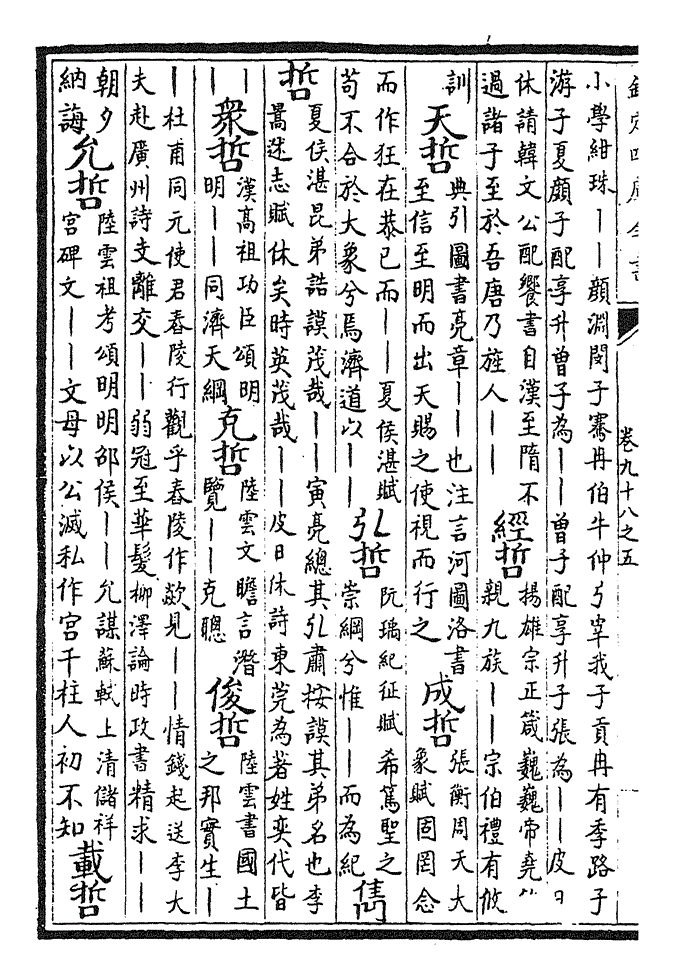 欽定四庫全書
卷九十八之五
小學紺珠——顔淵閔子騫冉伯牛仲弓宰我子貢冉有季路子
游子夏顔子配享升曾子為——曾子配享升子張為——皮日
休請韓文公配饗書自漢至隋不
過諸子至於吾唐乃旌人——
經哲
揚雄宗正箴巍巍帝堯
親九族——宗伯禮有攸
訓
天哲
典引圖書亮章——也注言河圖洛書
至信至明而出天賜之使視而行之
成哲
張衡周天大
象賦固罔念
而作狂在恭已而——夏侯湛賦
苟不合於大象兮焉濟道以——
弘哲
阮瑀紀征賦希篤聖之
崇綱兮惟——而為紀
雋
哲
夏侯湛昆弟誥謨茂哉——寅亮總其弘肅按謨其弟名也李
暠述志賦休矣時英茂哉——皮日休詩東莞為著姓奕代皆
——
衆哲
漢高祖功臣頌明
明——同濟天綱
克哲
陸雲文瞻言潛
覽——克聰
俊哲
陸雲書國土
之邦實生—
—杜甫同元使君舂陵行觀乎舂陵作欻見——情錢起送李大
夫赴廣州詩支離交——弱冠至華髮柳澤論時政書精求——
朝夕
納誨
允哲
陸雲祖考頌明明邵侯——允謀蘇軾上清儲祥
宮碑文——文母以公滅私作宮千柱人初不知
載哲